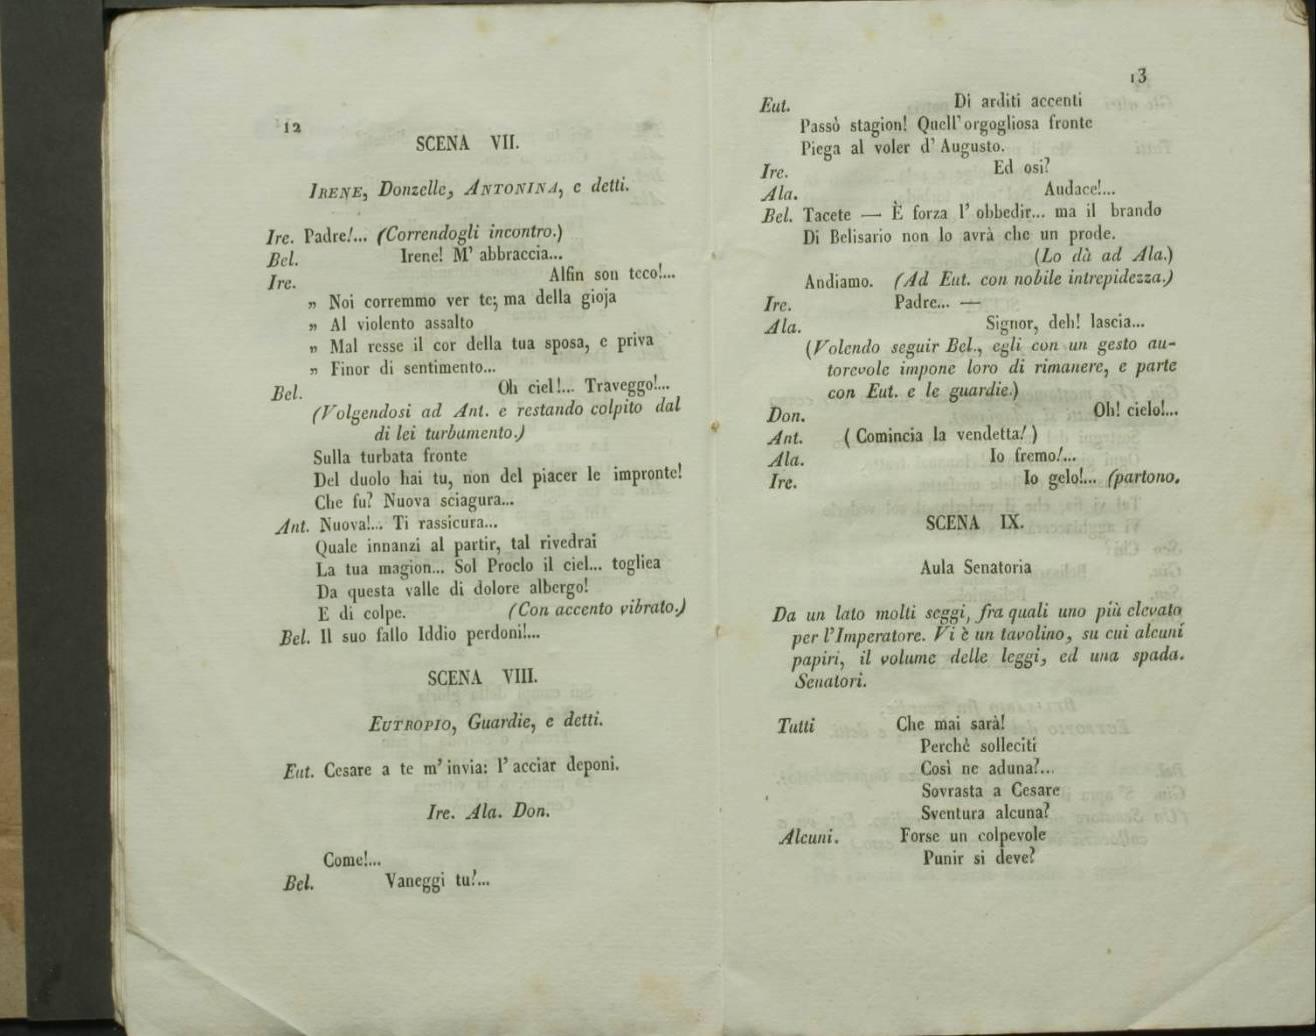 12
SCENA VII.
IRENE, Donzelle, ANTONINA, e detti.
Ire. Padre!... (Correndogli incontro.)
Bel. Irene! M' abbraccia...
Ire. Alfin son teco!...
„ Noi corremmo ver te; ma della gioja
„ Al violento assalto
„ Mal resse il cor della tua sposa, e priva
„ Finor di sentimento...
Bel. Oh ciel!... Traveggo!...
(Volgendosi ad Ant. e restando colpito dal
di lei turbamento.)
Sulla turbata fronte
Del duolo hai tu, non del piacer le impronte!
Che fu? Nuova sciagura...
Ant. Nuova!... Ti rassicura...
Quale innanzi al partir, tal rivedrai
La tua magion... Sol Proclo il ciel... togliea
Da questa valle di dolore albergo!
E di colpe. (Con accento vibrato.)
Bel. Il suo fallo Iddio perdoni!...
SCENA VIII.
EUTROPIO, Guardie, e detti.
Eut. Cesare a te m' invia: l' acciar deponi.
Ire. Ala. Don.
Come!...
Bel. Vaneggi tu!...
13
Eut. Di arditi accenti
Passò stagion! Quell' orgogliosa fronte
Piega al voler d' Augusto.
Ire. Ed osi?
Ala. Audace!...
Bel. Tacete — È forza l' obbedir... ma il brando
Di Belisario non lo avrà che un prode.
(Lo dà ad Ala.)
Andiamo. (Ad Eut. con nobile intrepidezza.)
Ire. Padre... —
Ala. Signor, deh! lascia...
(Volendo seguir Bel., egli con un gesto au-
torevole impone loro di rimanere, e parte
con Eut. e le guardie.)
Don. Oh! cielo!...
Ant. ( Comincia la vendetta! )
Ala. Io fremo!...
Ire. Io gelo!... (partono.
SCENA IX.
Aula Senatoria
Da un lato molti seggi, fra quali uno più elevato
per l'Imperatore. Vi è un tavolino, su cui alcuni
papiri, il volume delle leggi, ed una spada.
Senatori.
Tutti Che mai sarà!
Perchè solleciti
Così ne aduna?...
Sovrasta a Cesare
Sventura alcuna?
Alcuni. Forse un colpevole
Punir si deve?